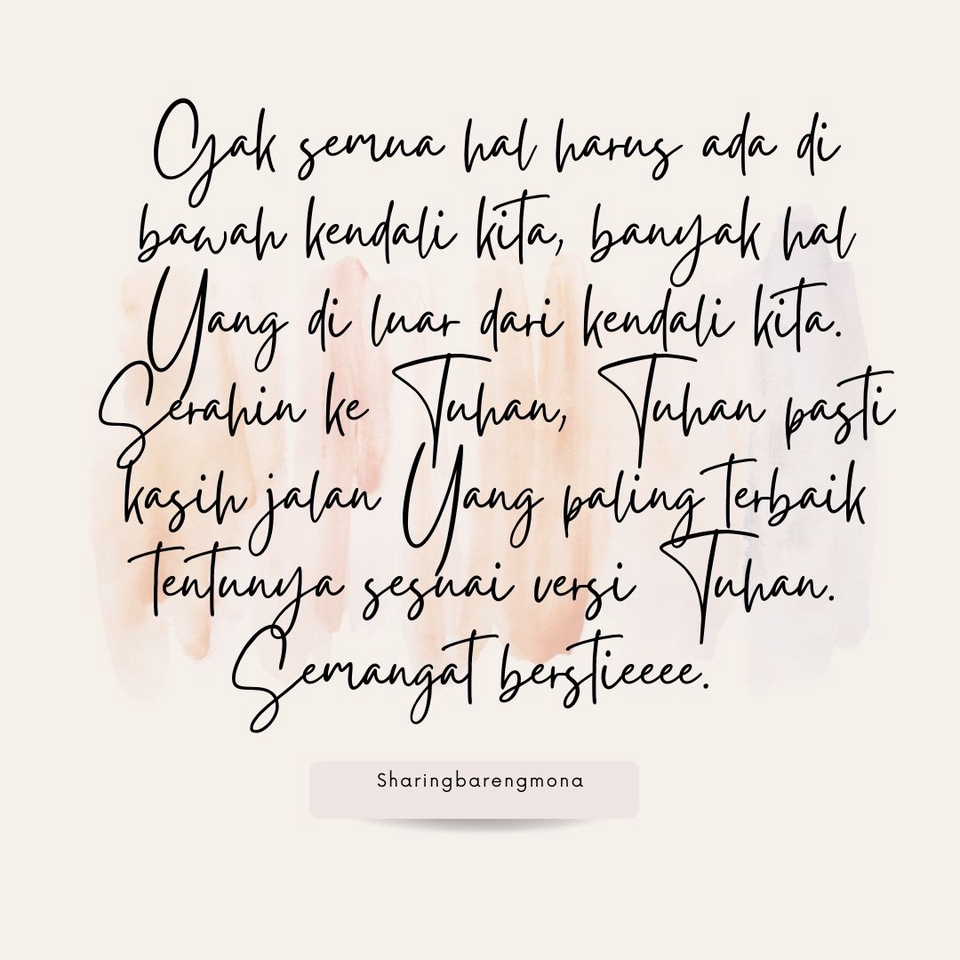 Gak semua hal harus ada di
bawah kendali kita, banyak hal
Yang di luar dari kendali kita.
Serahin ke Tuhan, Tuhan pasti
kasih jalan Yang paling terbaik
tentunya sesuai versi Tuhan.
Semangat berstieeee.
Sharingbarengmona